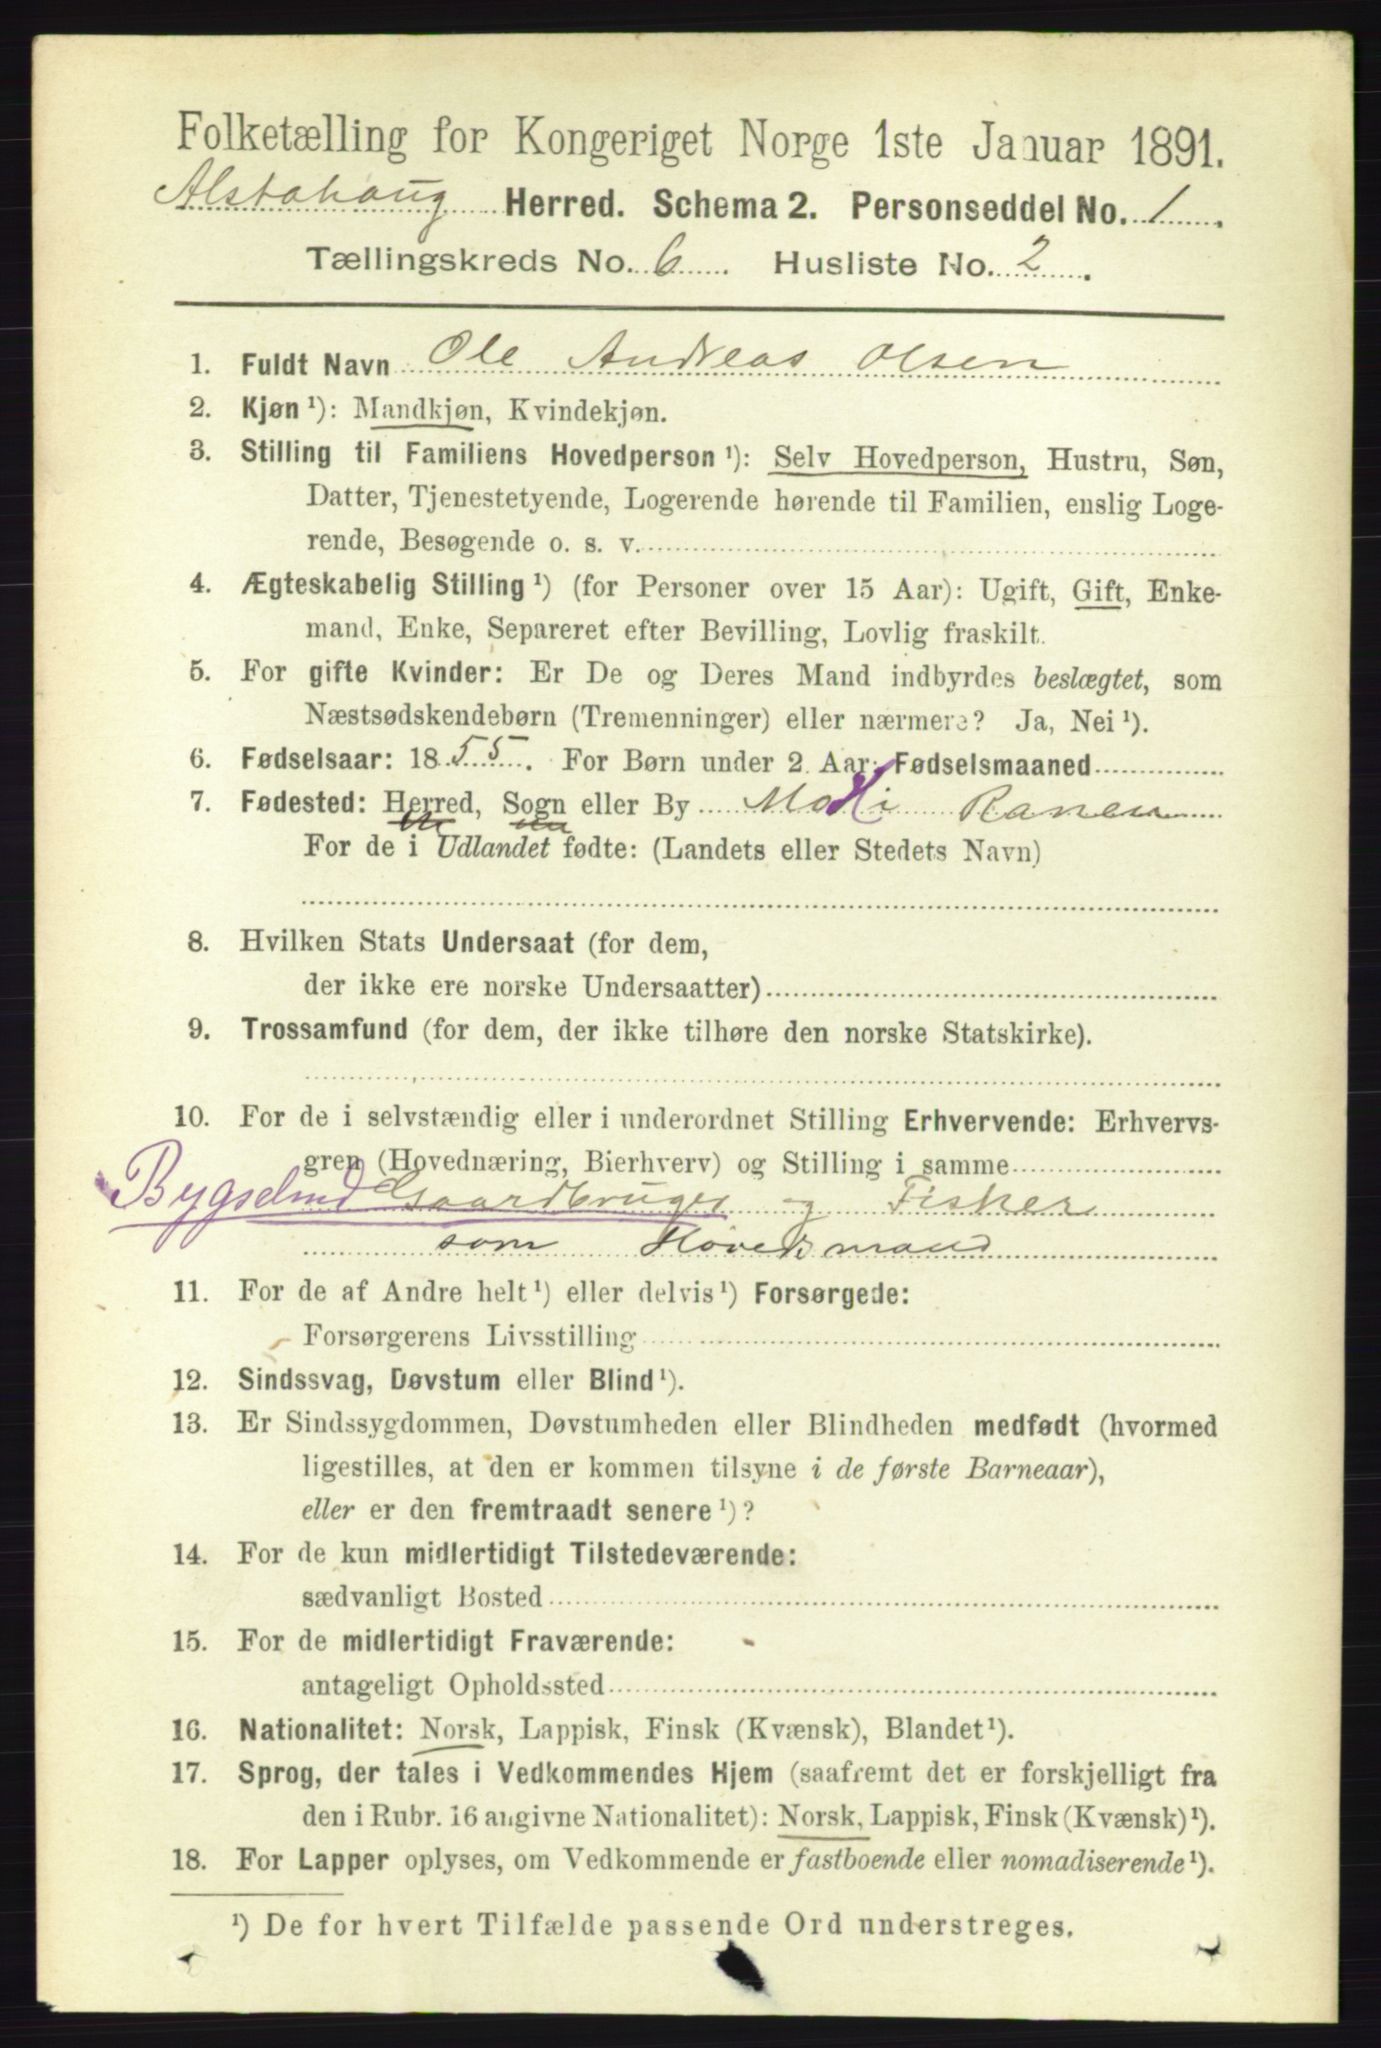 Folketælling for Kongeriget Norge 1ste Januar 1891.
Alstahoug Herred. Schema 2. Personseddel No. 1.
Tællingskreds No. 6. Husliste No. 2.
1. Fuldt Navn Ole Andreas Olsen
2. Kjøn ¹): Mandkjøn, Kvindekjøn.
3. Stilling til Familiens Hovedperson ¹): Selv Hovedperson, Hustru, Søn,
Datter, Tjenestetyende, Logerende hørende til Familien, enslig Loge-
rende, Besøgende o. s. v.
4. Ægteskabelig Stilling ¹) (for Personer over 15 Aar): Ugift, Gift, Enke-
mand, Enke, Separeret efter Bevilling, Lovlig fraskilt.
5. For gifte Kvinder: Er De og Deres Mand indbyrdes beslægtet, som
Næstsødskendebørn (Tremenninger) eller nærmere? Ja, Nei ¹).
6. Fødselsaar: 1855. For Børn under 2 Aar: Fødselsmaaned
7. Fødested: Herred, Sogn eller By Mo i Ranen
For de i Udlandet fødte: (Landets eller Stedets Navn)
8. Hvilken Stats Undersaat (for dem,
der ikke ere norske Undersaatter)
9. Trossamfund (for dem, der ikke tilhøre den norske Statskirke).
10. For de i selvstændig eller i underordnet Stilling Erhvervende: Erhvervs-
gren (Hovednæring, Bierhverv) og Stilling i samme
Bygselmd Gaardbruger og Fisker
som Høvedsmand
11. For de af Andre helt ¹) eller delvis ¹) Forsørgede:
Forsørgerens Livsstilling
12. Sindssvag, Døvstum eller Blind ¹).
13. Er Sindssygdommen, Døvstumheden eller Blindheden medfødt (hvormed
ligestilles, at den er kommen tilsyne i de første Barneaar),
eller er den fremtraadt senere ¹)?
14. For de kun midlertidigt Tilstedeværende:
sædvanligt Bosted
15. For de midlertidigt Fraværende:
antageligt Opholdssted
16. Nationalitet: Norsk, Lappisk, Finsk (Kvænsk), Blandet ¹).
17. Sprog, der tales i Vedkommendes Hjem (saafremt det er forskjelligt fra
den i Rubr. 16 angivne Nationalitet): Norsk, Lappisk, Finsk (Kvænsk) ¹).
18. For Lapper oplyses, om Vedkommende er fastboende eller nomadiserende ¹).
¹) De for hvert Tilfælde passende Ord understreges.